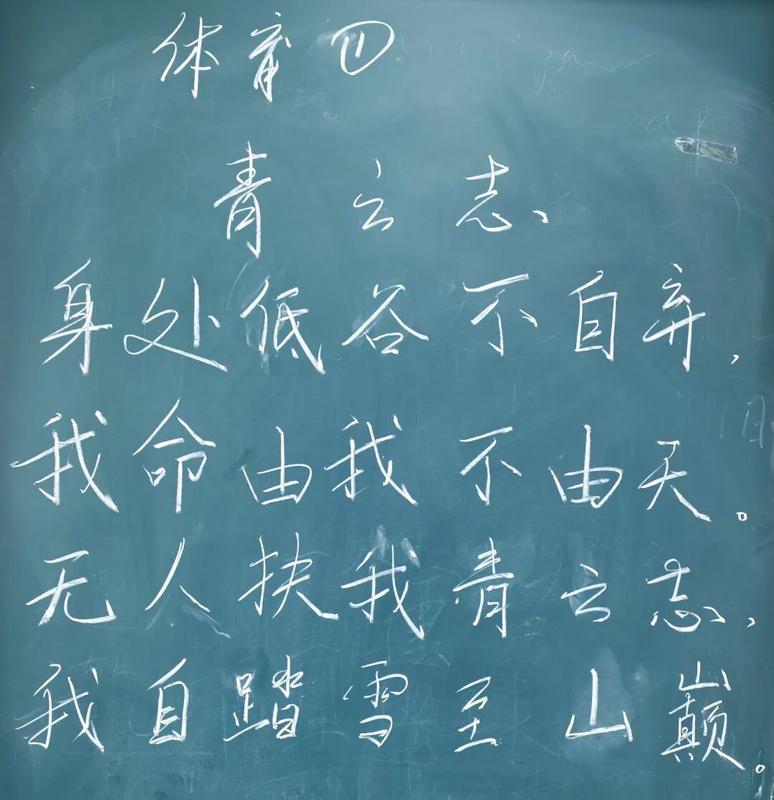 体育
青云志
身处低谷不自弃，
我命由我不由天。
无人扶我青云志，
我自踏雪至山巅。